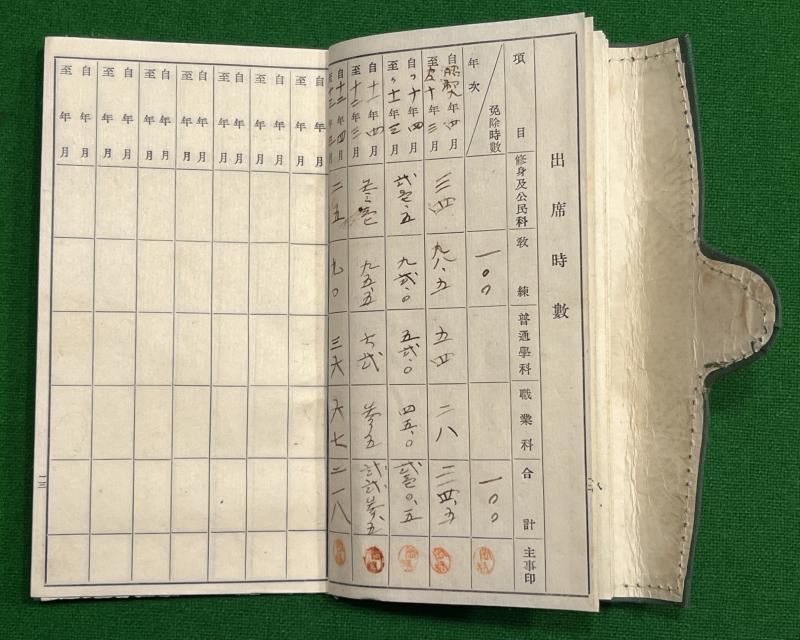 出席時數
項目 修身及公民科 教練 普通學科 職業科 合計 主事印
年次 免除時數 一〇〇 一〇〇
自昭和九年四月
至〃十年三月 三四 九八.五 五四 二八 二一四.五
自〃十年四月
至〃十一年三月 弐壱.五 九弐.〇 五弐.〇 四五.〇 弐壱〇.五
自十一年四月
至十二年三月 参壱 九五.五 六弐 参五 弐弐参.五
自十二年四月
至十三年三月 二五 九〇 三六 六七 二一八
自 年 月
至 年 月
自 年 月
至 年 月
自 年 月
至 年 月
自 年 月
至 年 月
自 年 月
至 年 月
自 年 月
至 年 月
自 年 月
至 年 月
一三